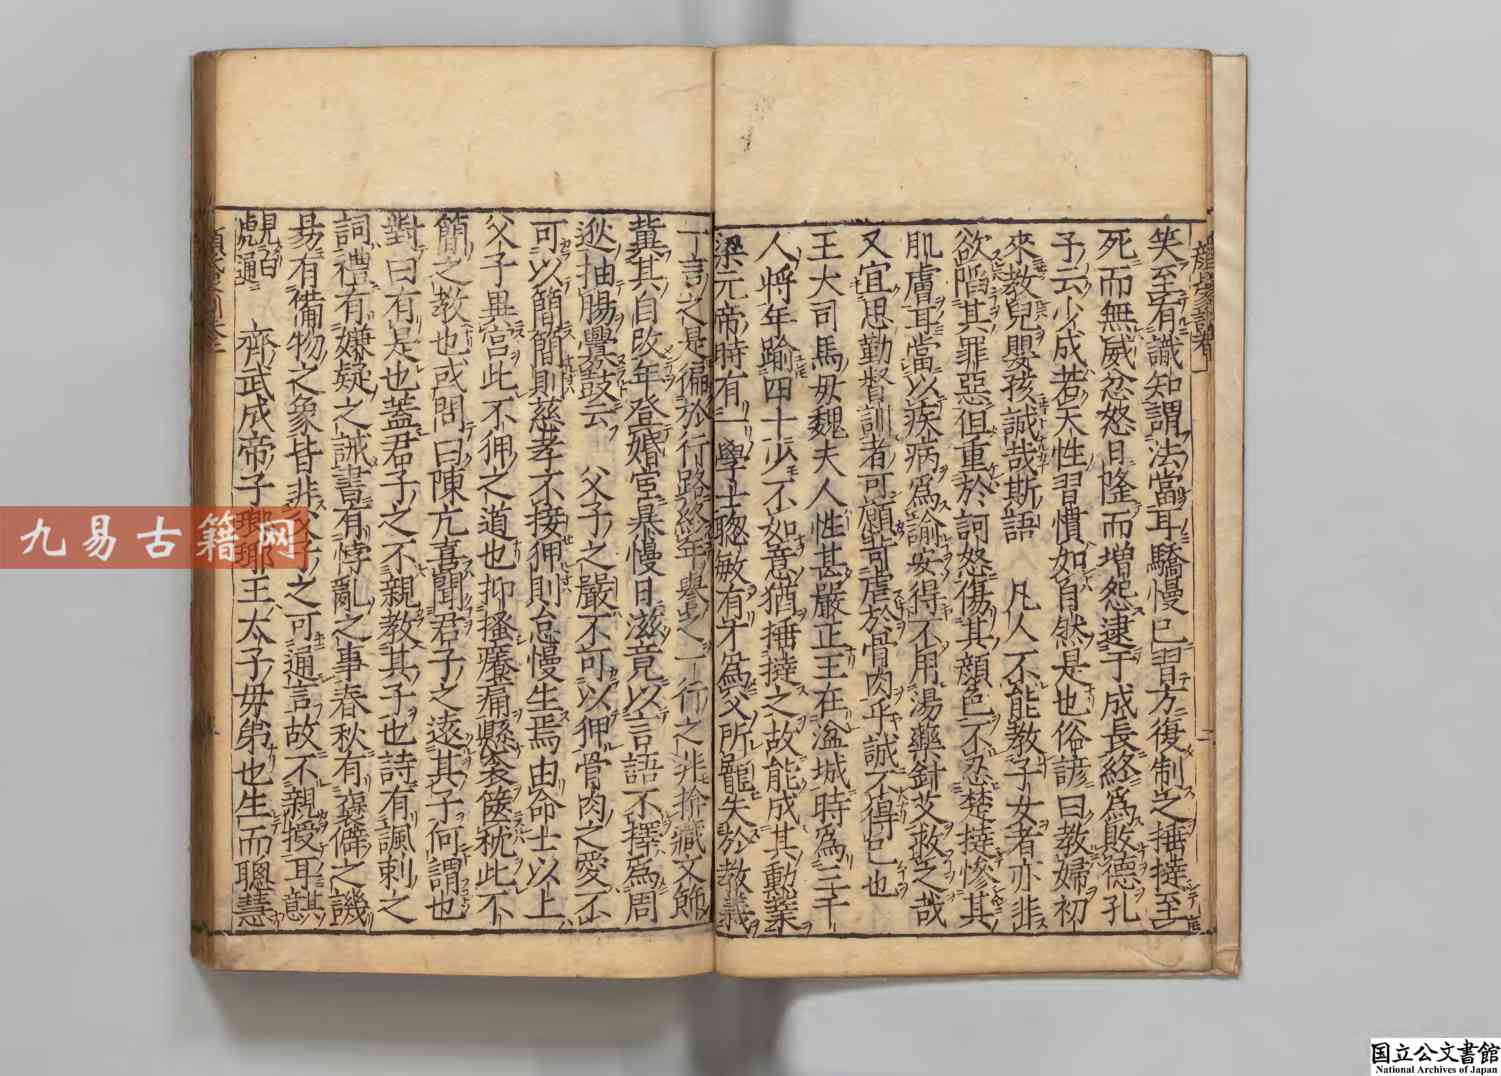 笑至有識知謂法當耳驕慢已習方復制之捶撻至
死而無威忿怒日隆而增怨逮于成長終爲敗德孔
子云少成若天性習慣如自然是也俗諺曰教婦初
來教兒嬰孩誠哉斯語 凡人不能教子女者亦非
欲陷其罪惡但重於訶怒傷其顏色不忍楚撻慘其
肌膚耳當以疾病爲諭安得不用湯藥針艾救之哉
又宜思勤督訓者可願苛虐於骨肉乎誠不得已也
王大司馬母魏夫人性甚嚴正王在湓城時爲三千
人將年踰四十少不如意猶捶撻之故能成其勳業
梁元帝時有一學士聰敏有才爲父所寵失於教義
一言之是徧於行路終年譽之一行之非揜藏文飾
冀其自改年登婚宦暴慢日滋竟以言語不擇爲周
逖抽腸釁鼓云 父子之嚴不可以狎骨肉之愛不
可以簡簡則慈孝不接狎則怠慢生焉由命士以上
父子異宮此不狎之道也抑搔癢痛懸衾篋枕此不
簡之教也或問曰陳亢喜聞君子之遠其子何謂也
對曰有是也蓋君子之不親教其子也詩有諷刺之
詞禮有嫌疑之誡書有悖亂之事春秋有衺僻之譏
易有備物之象皆非父子之可通言故不親授耳其
見白
虎通 齊武成帝子瑯琊王太子母弟也生而聰慧
九易古籍网
国立公文書館
National Archives of Japan